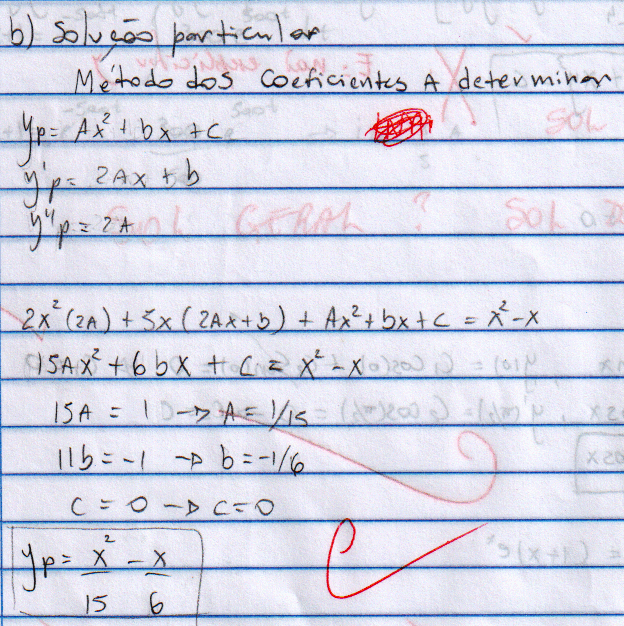 b) Solução particular
Método dos Coeficientes A determinar
yp = Ax² + bx + c
y'p = 2Ax + b
y"p = 2A
2x²(2A) + 5x(2Ax+b) + Ax²+bx+c = x²-x
15Ax² + 6bx + c = x² - x
15A = 1 → A = 1/15
11b = -1 → b = -1/6
c = 0 → c = 0
yp = x²/15 - x/6